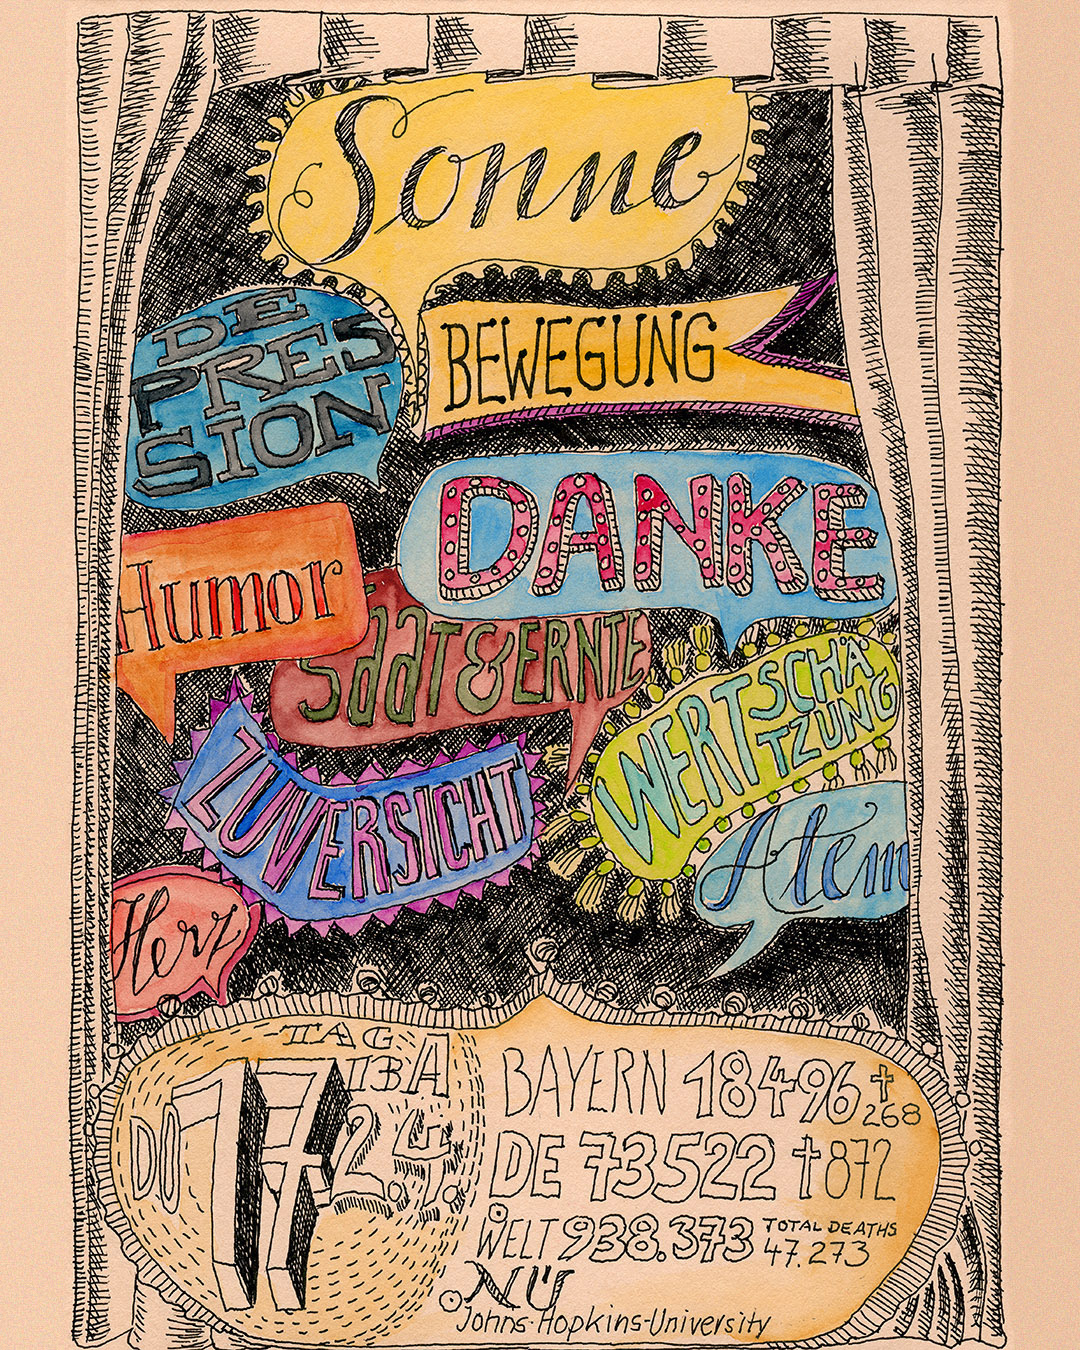 Sonne
DE
PRES
SION
BEWEGUNG
DANKE
Humor
Saat & ERNTE
WERTSCHÄ-
TZUNG
ZUVERSICHT
Atem
Herz
TAG
17
13A
DO
2.4.
BAYERN 18496 †268
DE 73522 †872
WELT 938.373 TOTAL DEATHS
47.273
NÜ
Johns-Hopkins-University